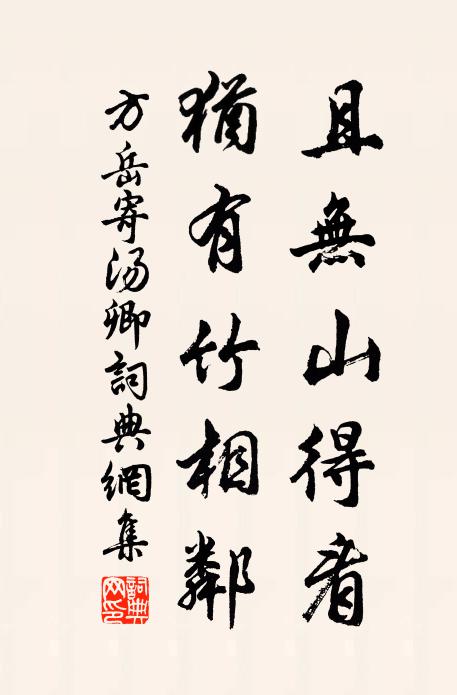 且無山得看
猶有竹相鄰
方岳寄湯卿詞典網集
詞典網印